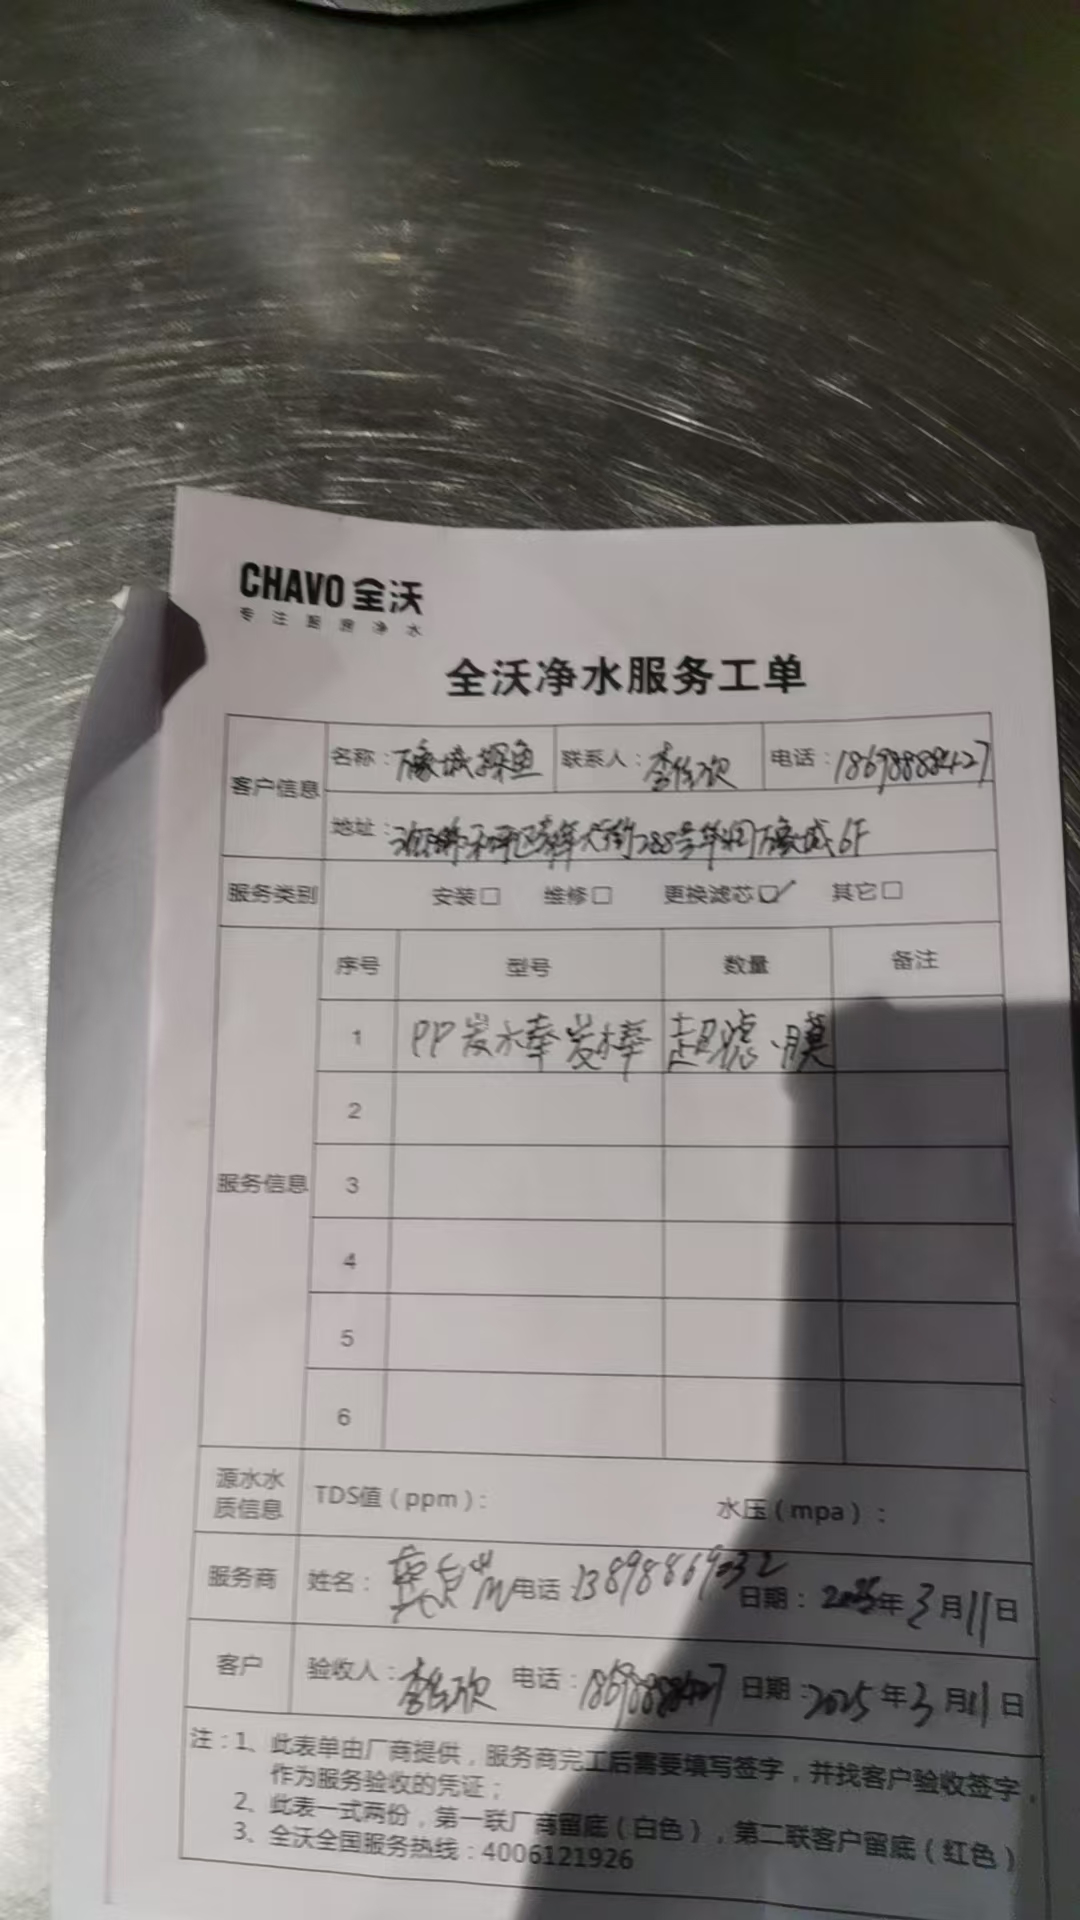 CHAVO 全沃
专注厨房净水
全沃净水服务工单
客户信息 名称：万象城探鱼 联系人：李佳欢 电话：18698888427
地址：沈阳市和平区青年大街288号华润万象城6F
服务类别 安装□ 维修□ 更换滤芯☑ 其它□
服务信息 序号 型号 数量 备注
1 PP炭棒炭棒 超滤膜
2
3
4
5
6
源水水质信息 TDS值（ppm）： 水压（mpa）：
服务商 姓名： 电话：13898869332 日期：2025年3月11日
客户 验收人：李佳欢 电话：18698888427 日期：2025年3月11日
注：1、此表单由厂商提供，服务商完工后需要填写签字，并找客户验收签字，
作为服务验收的凭证；
2、此表一式两份，第一联厂商留底（白色），第二联客户留底（红色）
3、全沃全国服务热线：4006121926